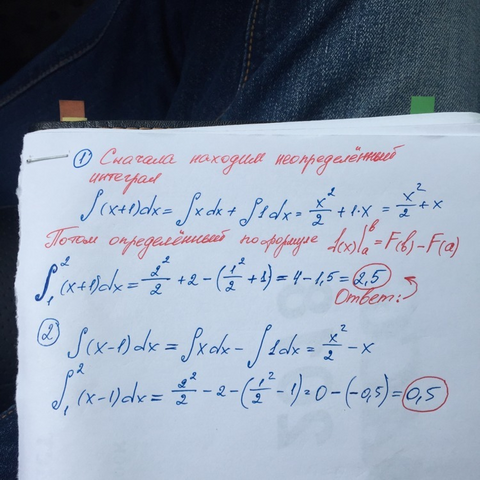 ① Сначала находим неопределённый
интеграл
∫(x+1)dx = ∫xdx + ∫1dx = x²/2 + 1·x = x²/2 + x
Потом определённый по формуле f(x)|ₐᵇ = F(b) - F(a)
∫₁² (x+1)dx = 2²/2 + 2 - (1²/2 + 1) = 4 - 1,5 = 2,5
Ответ:
② ∫(x-1)dx = ∫xdx - ∫1dx = x²/2 - x
∫₁² (x-1)dx = 2²/2 - 2 - (1²/2 - 1) = 0 - (-0,5) = 0,5